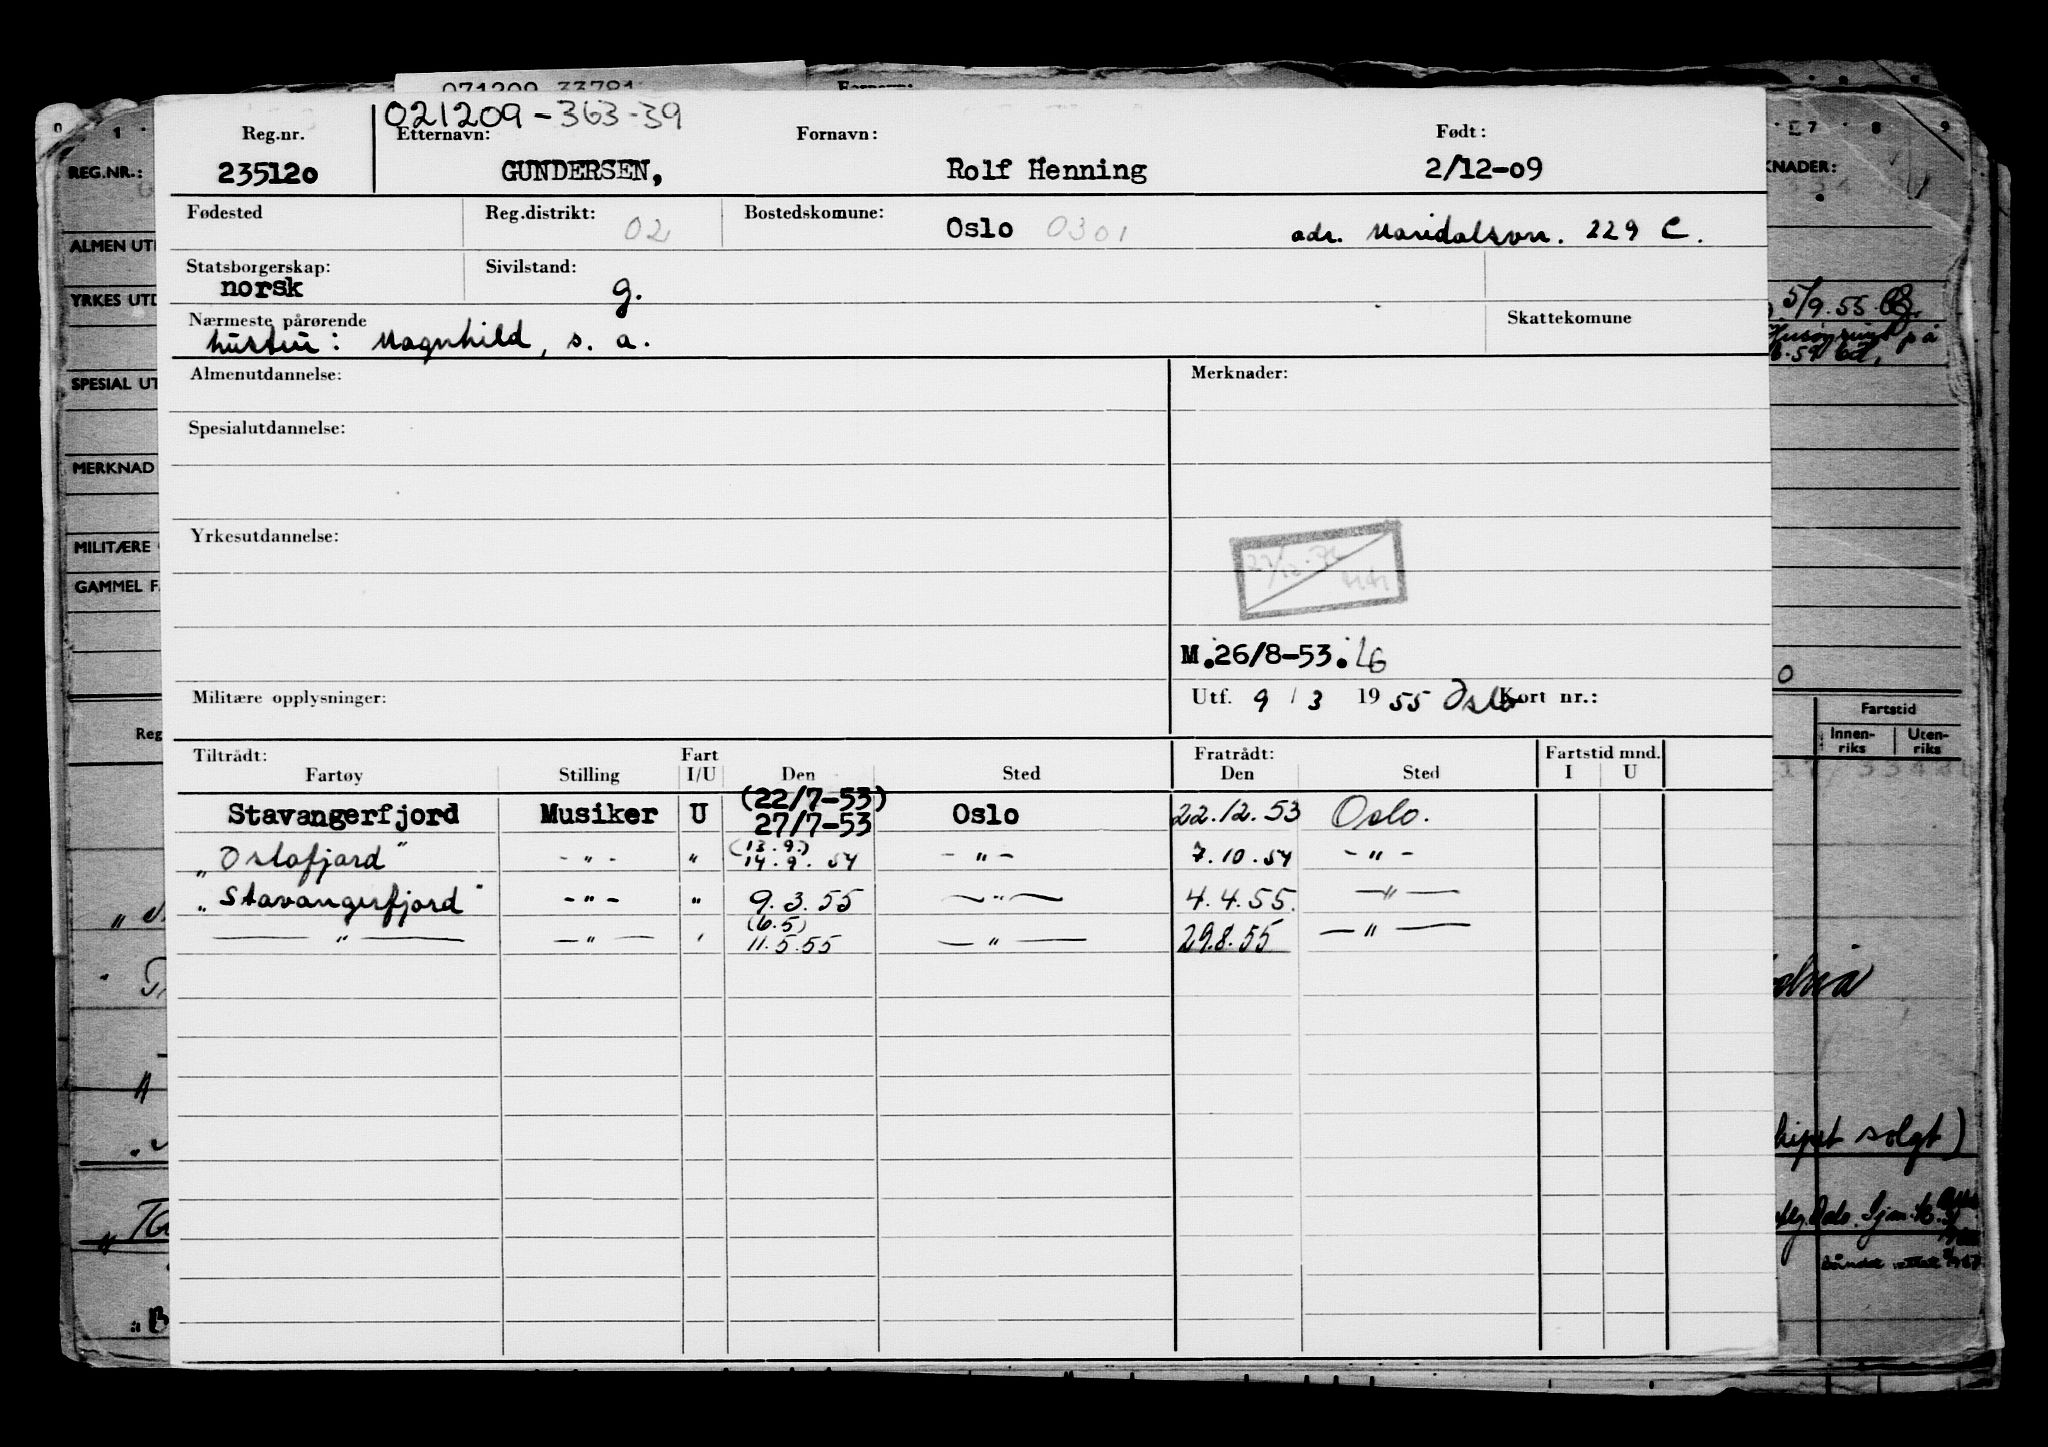 071209 33781
021209-363-39
Reg.nr. Etternavn: Fornavn: Født:
235120 GUNDERSEN, Rolf Henning 2/12-09
Fødested Reg.distrikt: 02 Bostedskomune: Oslo 0301 adr. Maridalsvn. 229 C.
Statsborgerskap: norsk Sivilstand: g.
Nærmeste pårørende Skattekomune
hustru: Magnhild, s. a.
Almenutdannelse: Merknader:
Spesialutdannelse:
Yrkesutdannelse:
M.26/8-53. LG
Militære opplysninger: Utf. 9 / 3 1955 Oslo Kort nr.:
Tiltrådt: Fart Fratrådt: Fartstid mnd.
Fartøy Stilling I/U Den Sted Den Sted I U
(22/7-53)
Stavangerfjord Musiker U 27/7-53 Oslo 22.12.53 Oslo.
(13.9.)
"Oslofjord" -"- " 14.9.54 -"- 7.10.54 -"-
"Stavangerfjord" -"- " 9.3.55 -"- 4.4.55. -"-
(6.5)
-"- -"- " 11.5.55 -"- 29.8.55 -"-
REG.NR.:
ALMEN UT
YRKES UTD
SPESIAL UT
MERKNAD
MILITÆRE
GAMMEL F
Reg
KNADER:
5/9.55
Fartstid
Innen-
riks
Uten-
riks
solgt)